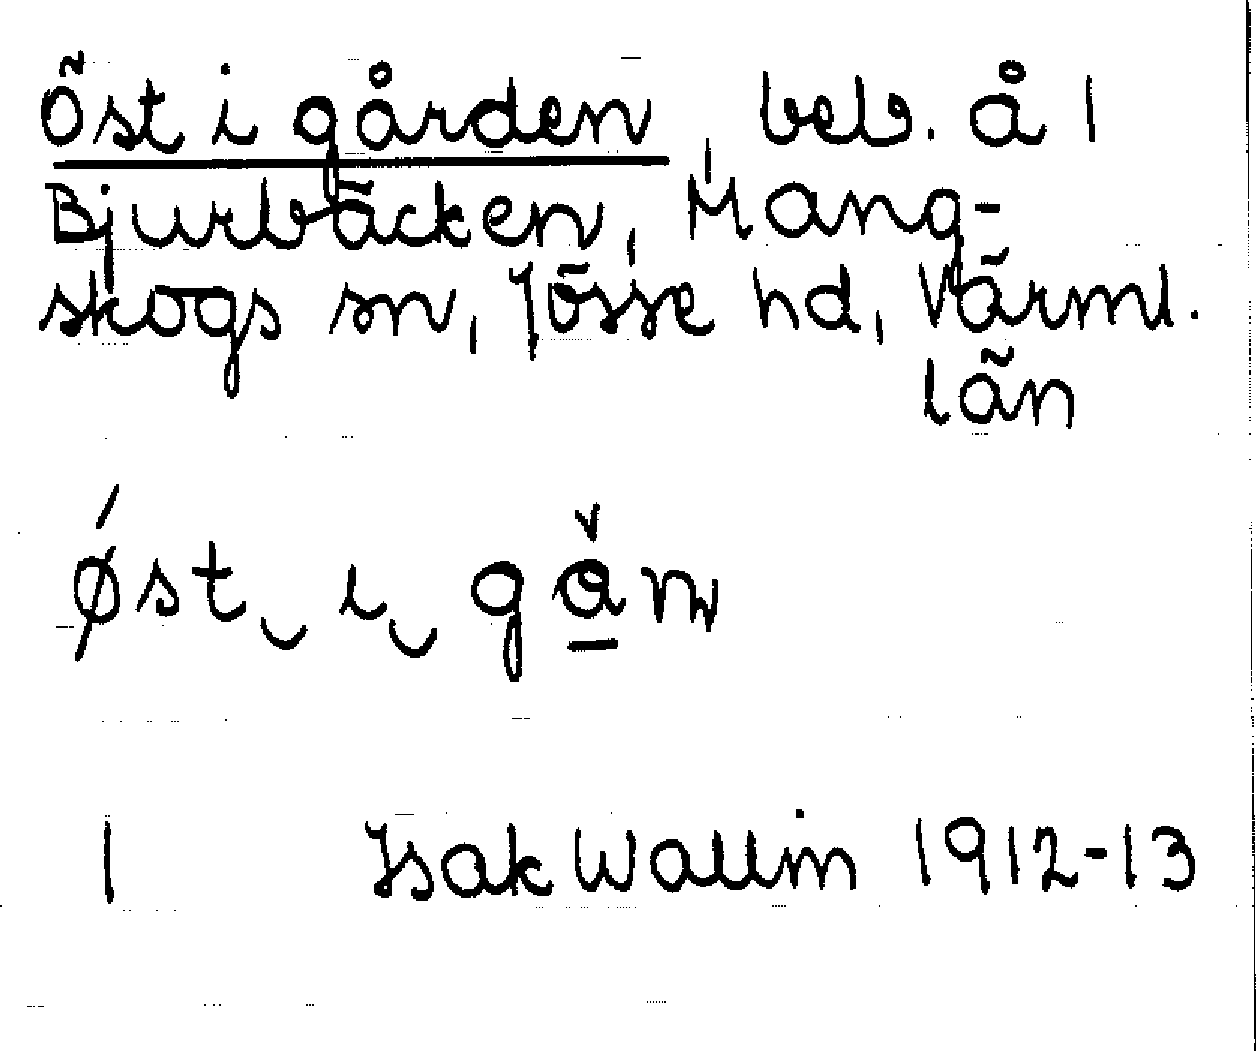 Öst i gården, beb. å 1
Bjurbäcken, Mang-
skogs sn, Jösse hd, Värml.
län
ǿst‿ i‿ gǎ̱n
1 Isak Wallin 1912-13